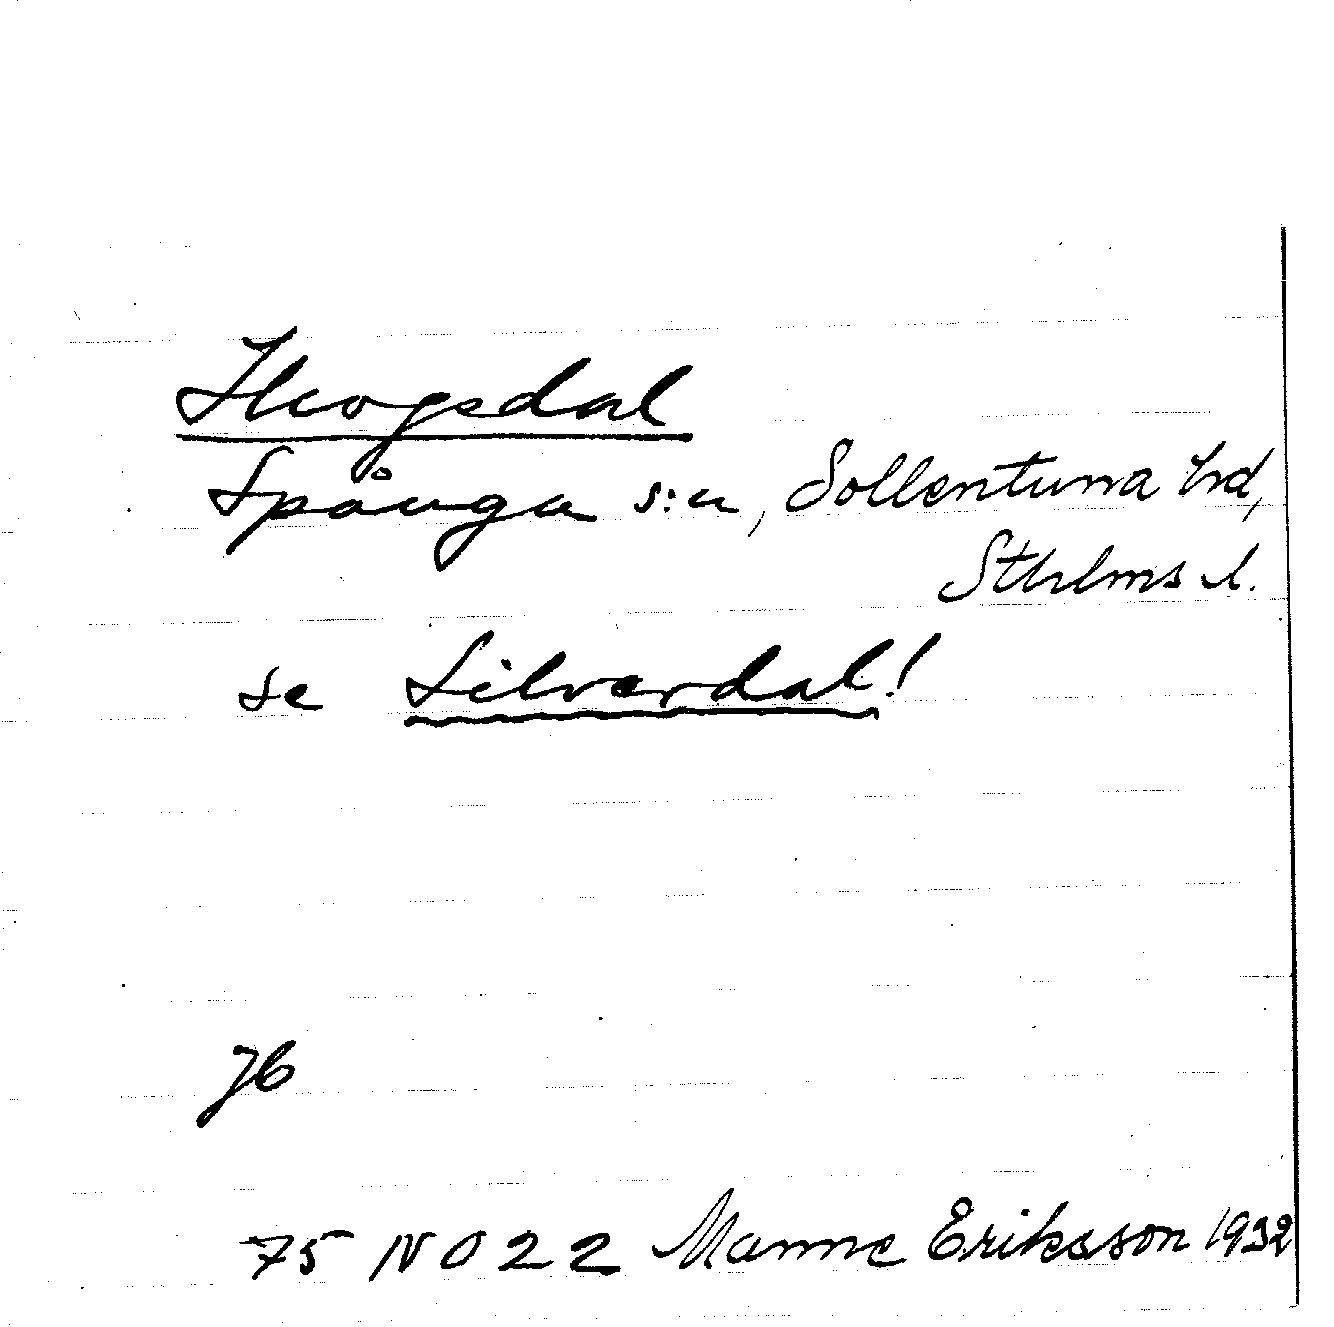 Skogsdal
Spånga s:n, Sollentuna hd,
Sthlms l.
se Silverdal!
Jb
75 NO 22 Manne Eriksson 1932